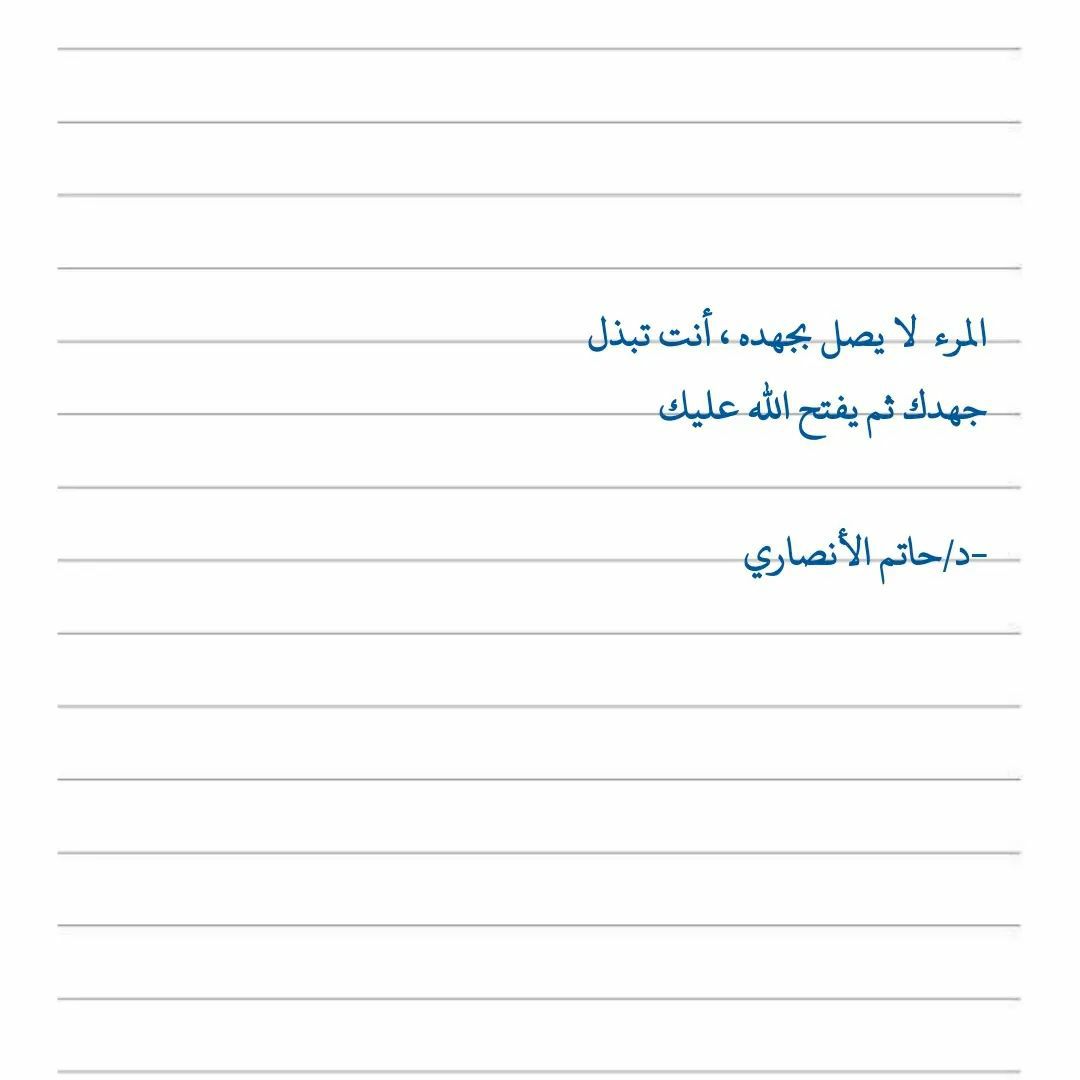 المرء لا يصل بجهده ، أنت تبذل
جهدك ثم يفتح الله عليك
-د/حاتم الأنصاري